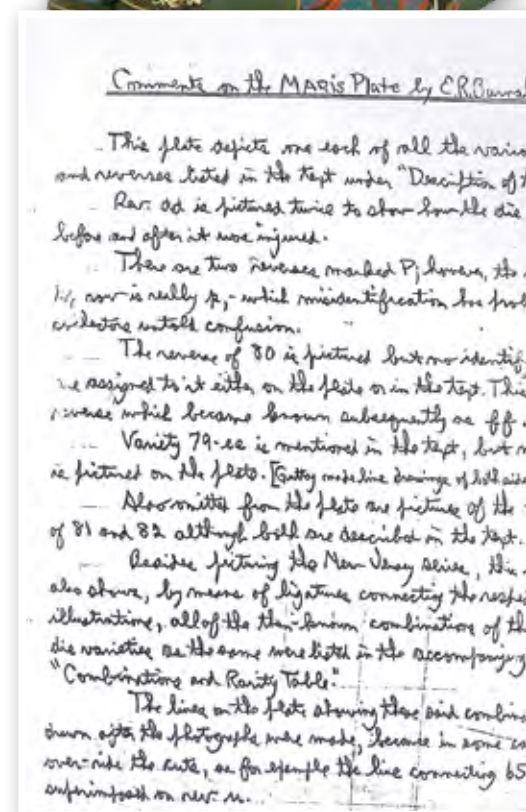 Comments on the MARIS Plate by E.R.Barns
This plate depicts one each of all the vario
and reverses listed in the text under "Description of t
Rev. dd is pictured twice to show how the die
before and after it was injured.
There are two reverses marked P; however, the
row is really p,- which misidentification has pro
collectors untold confusion.
The reverse of 80 is pictured but no identif
assigned to it either on the plate or in the text. This
reverse which became known subsequently as ff
Variety 79-ee is mentioned in the text, but n
is pictured on the plate. [Guttag made line drawings of both side
Also omitted from the plate are pictures of the
of 81 and 82 although both are described in the text.
Besides picturing the New Jersey series, this
also shows, by means of ligatures connecting the respe
illustrations, all of the then-known combinations of th
die varieties as the same were listed in the accompanying
"Combinations and Rarity Table".
The lines on the plate showing these said combina
drawn after the photographs were made, because in some ca
over-ride the cuts, as for example the line connecting 65
superimposed on rev. u.